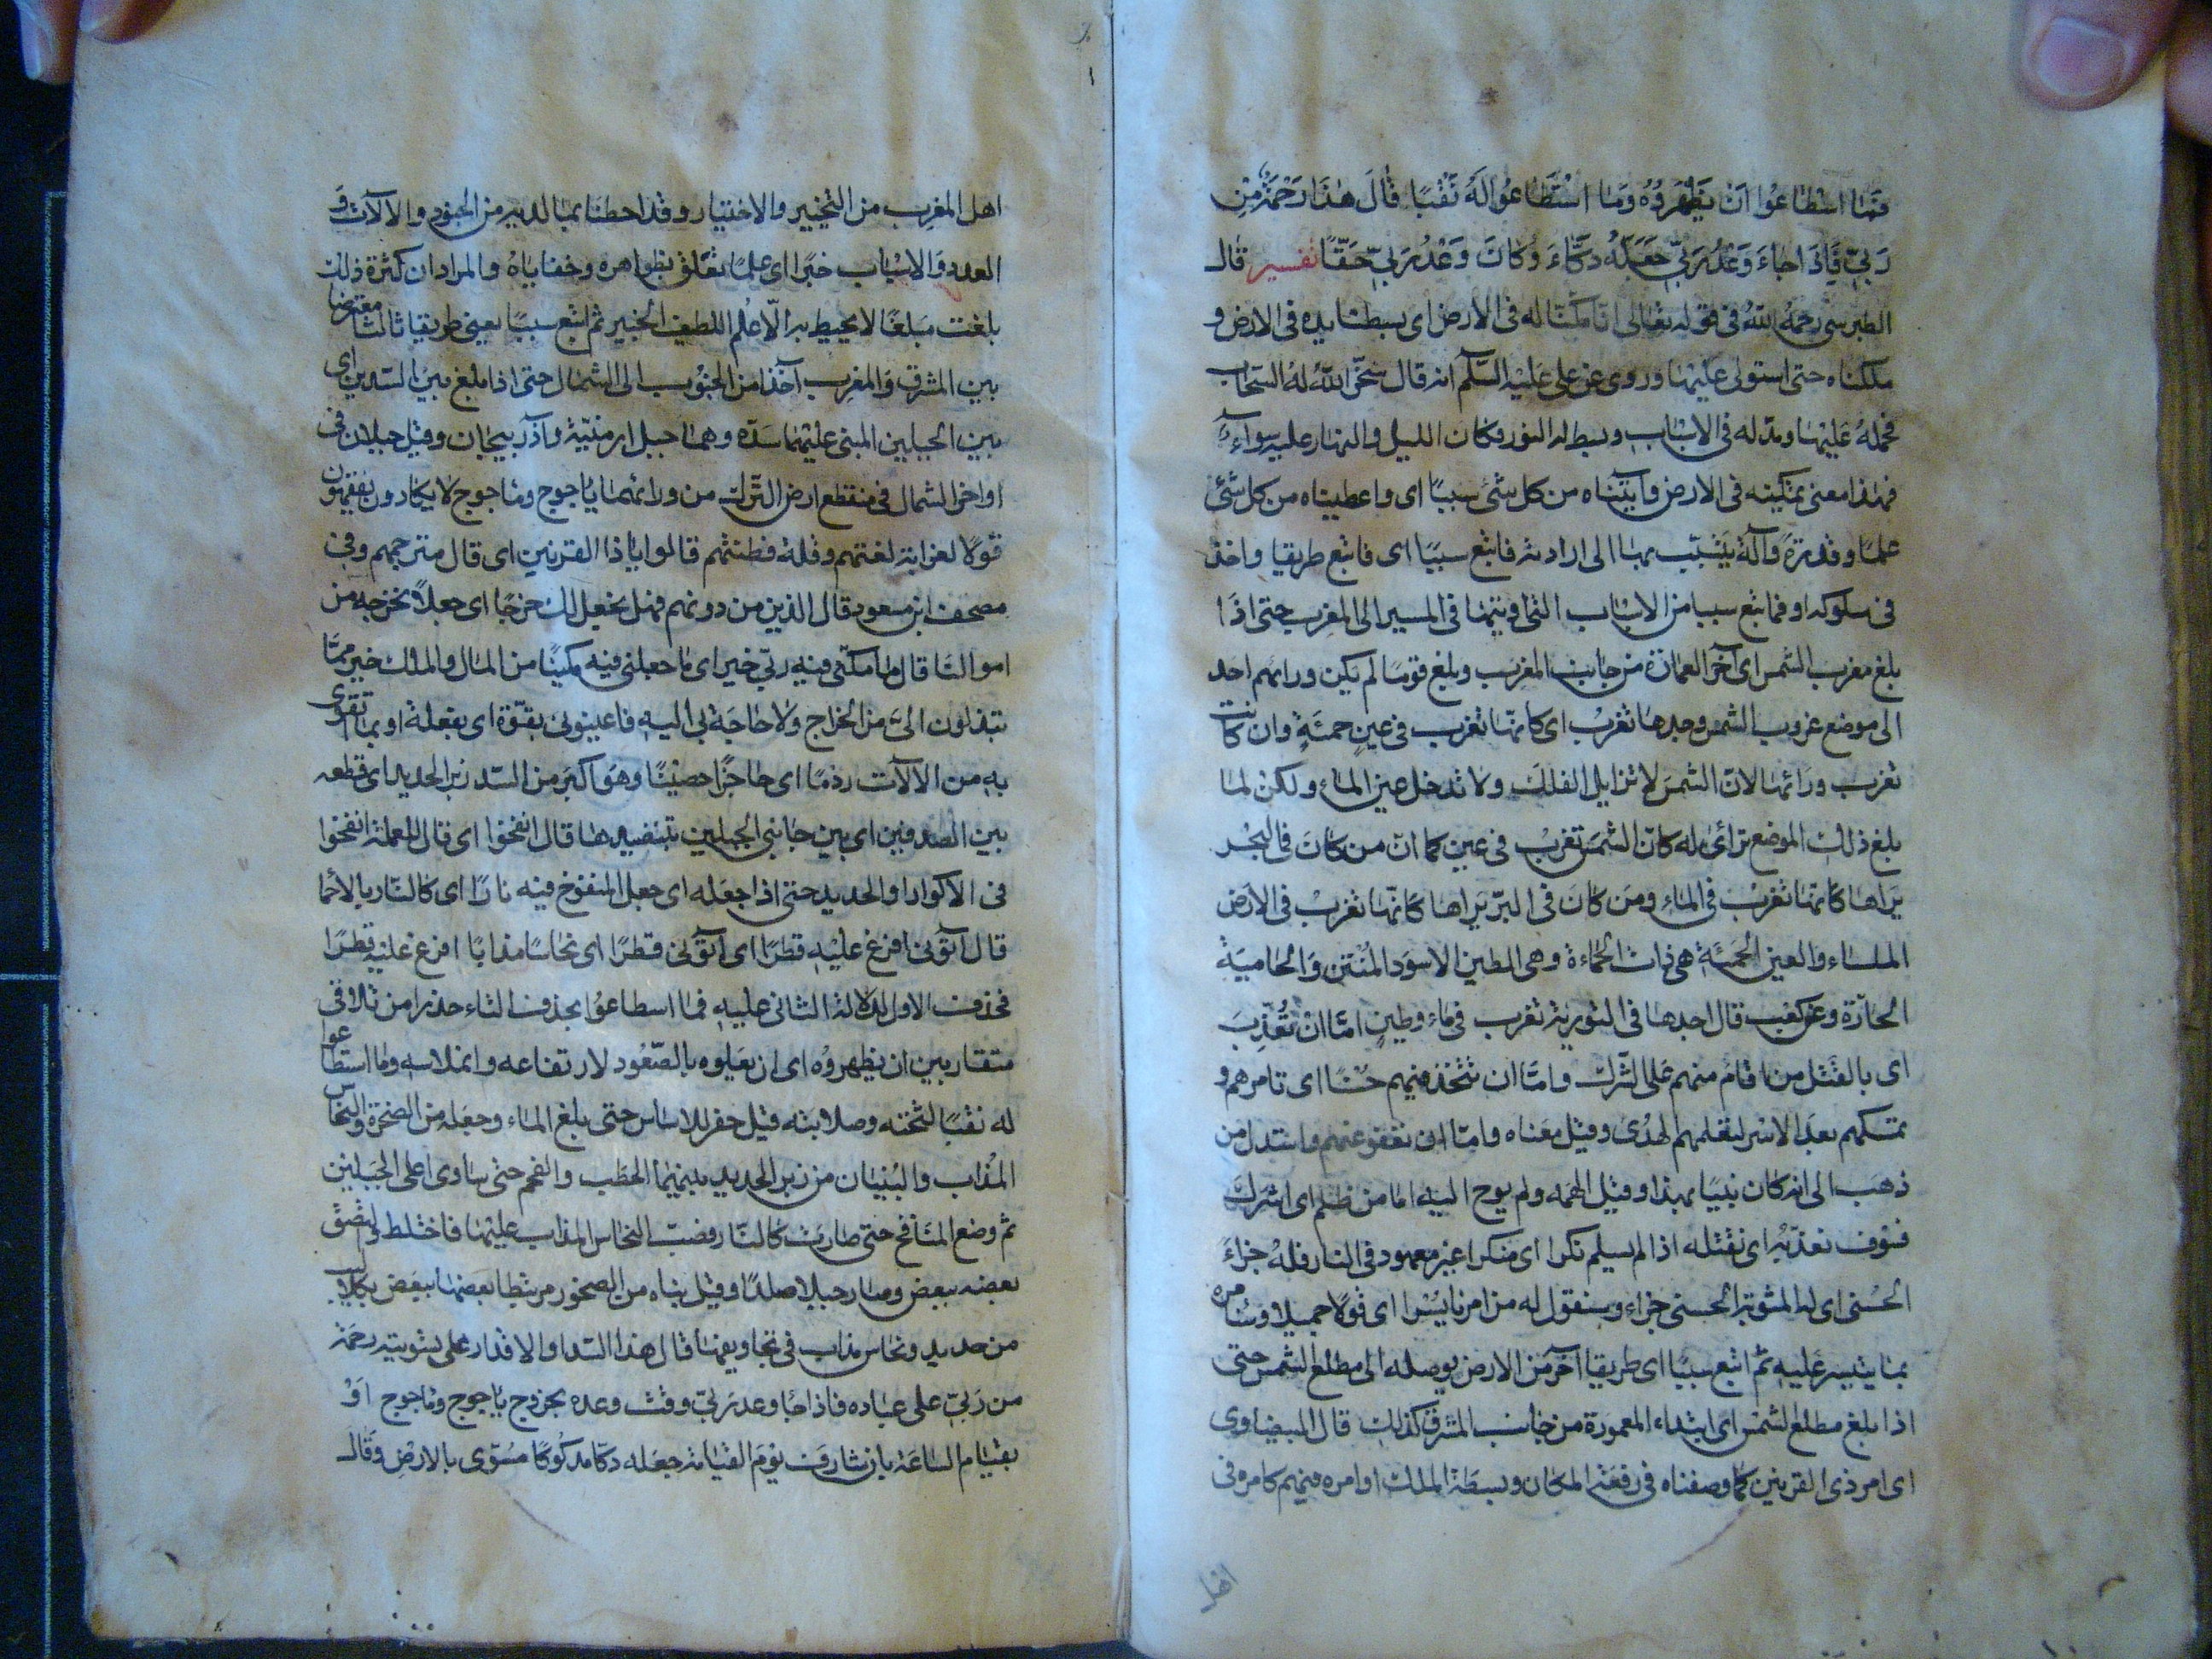 فَمَا اسْطَاعُوا اَنْ يَظْهَرُوُهُ وَمَا اسْتَطَاعُوا لَهُ نَقْبًا قَالَ هٰذَا رَحْمَةٌ مِنْ
رَبّي فَاِذَا جَاءَ وَعْدُ رَبّي جَعَلَهُ دَكَّاءَ وَكَانَ وَعْدُ رَبّي حَقًّا تفسير قال
الطبرسى رحمه الله فى قوله تعالى انا مكنّا له فى الارض اى بسطنا يده فى الارض و
ملكناه حتى استولى عليها وروى عن على عليه السّلم انه قال سخّر الله له السّحاب
فحمله عليها ومدّ له فى الاسباب وبسط له النور وكان الليل والنهار عليه سواء
فهذا معنى تمكينه فى الارض وآتيناه من كل شئ سببًا اى واعطيناه من كل شئ
علمًا وقدرة وآلة يتسبّب بها الى ارادته فاتبع سببًا اى فاتبع طريقا واخذ
فى سلوكه او فاتبع سببا من الاسباب التى اوتيها فى المسير الى المغرب حتى اذا
بلغ مغرب الشمس اى آخر العمارة من جانب المغرب وبلغ قومًا لم يكن وراءهم احد
الى موضع غروب الشمس وجدها تغرب اى كانّها تغرب فى عينٍ حمئةٍ وان كانت
تغرب ورائها لانّ الشمس لا تزايل الفلك ولا تدخل عين الماء ولكن لما
بلغ ذلك الموضع ترائى له كانّ الشمس تغرب فى عين كما انّ من كان فى البحر
يراها كانّها تغرب فى الماء ومن كان فى البرّ يراها كانّها تغرب فى الارض
الملساء والعين الحمئة هى ذات الحماءة وهى الطين الاسود المنتن والحامية
الحارّة وعن كعب قال اجدها فى التورية تغرب فى ماء وطينٍ امّا انْ تُعذِّبَ
اى بالقتل من اقام منهم على الشّرك وامّا ان تتخذ فيهم حسنًا اى تامرهم و
تمسكهم بعد الاسر لتعلمهم الهدى وقيل معناه وامّا ان تعفو عنهم واستدل من
ذهب الى انه كان نبيًا بهذا وقيل الهمه ولم يوح اليه اما من ظلم اى اشرك
فسوف نعذّبه اى نقتله اذا لم يسلم نكرا اى منكرا غير معهود فى النار فله جزاء
الحُسنى اى له المثوبة الحسنى جزاء وسنقول له من امرنا يسرا اى قولا جميلا وسنامره
بما يتيسر عليه ثم اتبع سببًا اى طريقا آخر من الارض يوصله الى مطلع الشمس حتى
اذا بلغ مطلع الشمس اى ابتداء المعمورة من جانب المشرق كذلك قال البيضاوى
اى امر ذى القرنين كما وصفناه فى رفعة المكان وبسطة الملك او امره فيهم كامره فى
اهل
اهل المغرب من التخيير والاختيار وقد احطنا بما لديه من الجنود والآلات و
العدد والاسباب خبرًا اى علمًا تعلّق بظواهره وخفاياهُ والمراد ان كثرة ذلك
بلغت مبلغًا لا يحيط به الّا علم اللطيف الخبير ثم اتبع سببًا يعنى طريقا ثالثا معترضا
بين المشرق والمغرب آخذا من الجنوب الى الشمال حتى اذا بلغ بين السّدين اى
بين الجبلين المبنى عليهما سدّه وهما جبل ارمنيّة وآذربيجان وقيل جبلان فى
اواخر الشمال فى منقطع ارض التّرك من ورائهما ياجوج وماجوج لا يكادون يفقهون
قولا لغرابة لغتهم وقلة فطنتهم قالوا ياذا القرنين اى قال مترجمهم وفى
مصحف ابن مسعود قال الذين من دونهم فهل نجعل لك خرجًا اى جعلاً نخرجه من
اموالنا قال ما مكنّى فيه ربّى خير اى ما جعلنى فيه مكينًا من المال والملك خير ممّا
تبذلون الىّ من الخراج ولا حاجة بى اليه فاعينونى بقوّة اى بفعلة او بما اتقوى
به من الآلات ردمًا اى حاجزًا حصينًا وهو اكبر من السّد زبر الحديد اى قطعه
بين الصدفين اى بين جانبى الجبلين بتنضيدها قال انفخوا اى قال للعملة انفخوا
فى الاكوار والحديد حتى اذا جعله اى جعل المنفوخ فيه نارًا اى كالنّار بالاحما
قال آتونى افرغ عليه قطرًا اى آتونى قطرًا اى نحاسًا مذابًا افرغ عليه قطرًا
فحذف الاول لدلالة الثانى عليه فما اسطاعوُا بحذف التاء حذرا من تلاقى
متقاربين ان يظهروُه اى ان يعلوه بالصّعُود لارتفاعه وانملاسه وما استطاعوا
له نقبًا لثخنه وصلابته وقيل حفر للاساس حتى بلغ الماء وجعله من الصخرة والنحاس
المُذاب والبُنيان من زبر الحديد بينهما الحطب والفحم حتى ساوى اعلى الجبلين
ثم وضع المنافخ حتى صارت كالنّار فصبّ النحاس المذاب عليها فاختلط والتصق
بعضه ببعض وصار جبلا صلدًا وقيل بناه من الصخور مرتبطا بعضها ببعض بكلاليب
من حديد ونحاس مذاب فى تجاويفها قال هذا السّد او الاقدار على تسويته رحمة
من ربّى على عباده فاذا جا وعد ربّى وقت وعده بخروج ياجوج وماجوج اوْ
بقيام الساعة بان شارف يوم القيامة جعله دكّا مدكوكًا مسوّى بالارض وقال